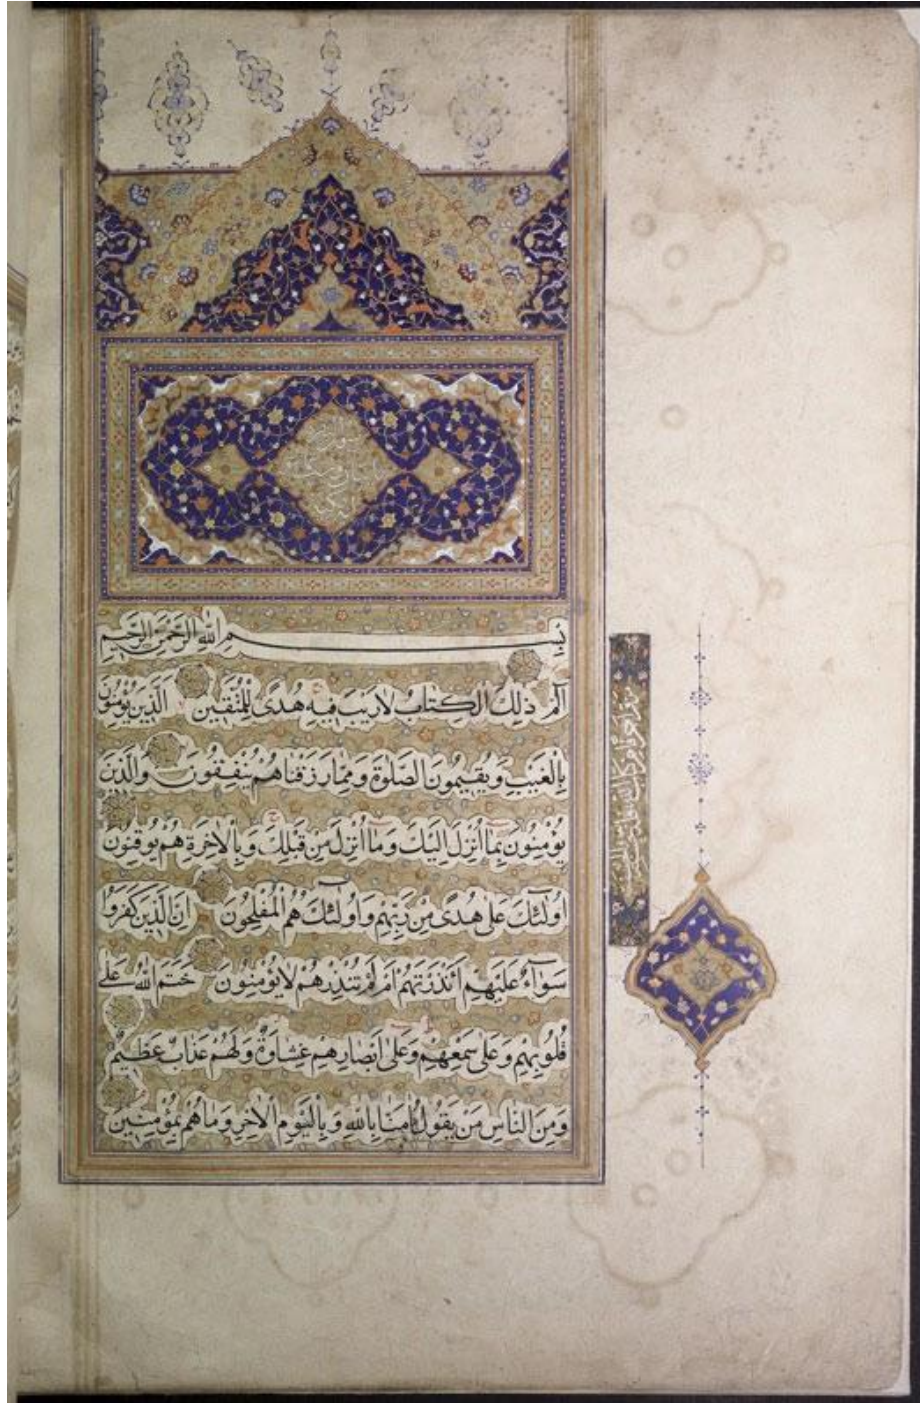 بِسْمِ اللهِ الرَّحْمٰنِ الرَّحِيمِ
الٓمٓ ذٰلِكَ الْكِتَابُ لَارَيْبَ فِيهِ هُدًى لِلْمُتَّقِينَ الَّذِينَ يُؤْمِنُونَ
بِالْغَيْبِ وَيُقِيمُونَ الصَّلٰوةَ وَمِمَّا رَزَقْنَاهُمْ يُنْفِقُونَ وَالَّذِينَ
يُؤْمِنُونَ بِمَا اُنْزِلَ اِلَيْكَ وَمَا اُنْزِلَ مِنْ قَبْلِكَ وَبِالْاٰخِرَةِ هُمْ يُوقِنُونَ
اُولٰٓئِكَ عَلٰى هُدًى مِنْ رَبِّهِمْ وَاُولٰٓئِكَ هُمُ الْمُفْلِحُونَ اِنَّ الَّذِينَ كَفَرُوا
سَوَآءٌ عَلَيْهِمْ ءَاَنْذَرْتَهُمْ اَمْ لَمْ تُنْذِرْهُمْ لَايُؤْمِنُونَ خَتَمَ اللهُ عَلٰى
قُلُوبِهِمْ وَعَلٰى سَمْعِهِمْ وَعَلٰى اَبْصَارِهِمْ غِشَاوَةٌ وَلَهُمْ عَذَابٌ عَظِيمٌ
وَمِنَ النَّاسِ مَنْ يَقُولُ اٰمَنَّا بِاللهِ وَبِالْيَوْمِ الْاٰخِرِ وَمَاهُمْ بِمُؤْمِنِينَ